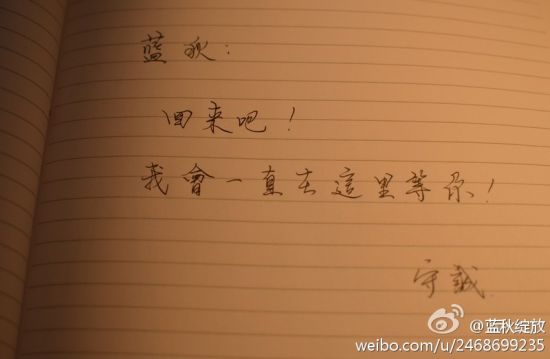 蓝秋：
回来吧！
我會一直在這里等你！
守誠
@蓝秋绽放
weibo.com/u/2468699235